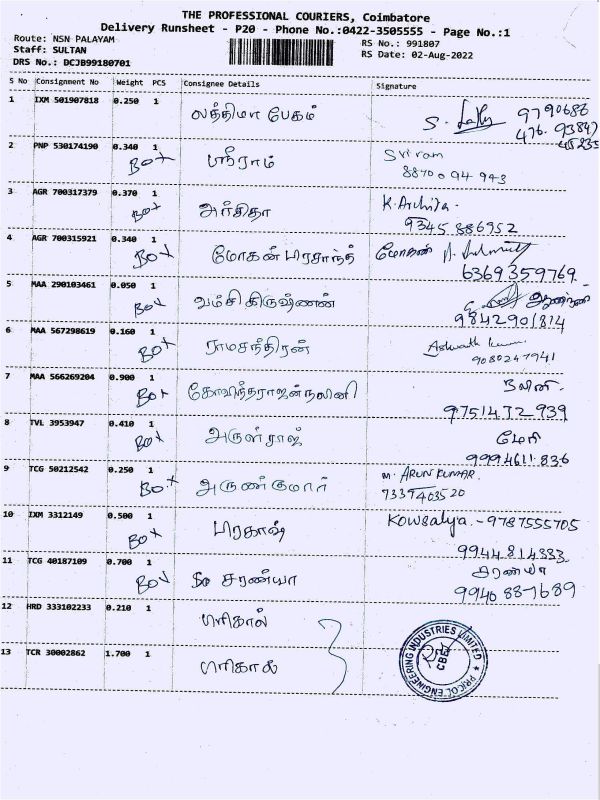 THE PROFESSIONAL COURIERS, Coimbatore
Delivery Runsheet - P20 - Phone No.:0422-3505555 - Page No.:1
Route: NSN PALAYAM RS No.: 991807
Staff: SULTAN RS Date: 02-Aug-2022
DRS No.: DCJB99180701
S No Consignment No Weight PCS Consignee Details Signature
1 IXM 501907818 0.250 1 லத்திமா பேகம் 9790686
476. 93847
45235
2 PNP 530174190 0.340 1 BOX ஸ்ரீராம் Sriram
88700 94 943
3 AGR 700317379 0.370 1 BOX அர்சிதா K. Archita.
9345 886952
4 AGR 700315921 0.340 1 BOX மோகன் பிரசாந்த் மோகன்
6369359769
5 MAA 290103461 0.050 1 BOX வம்சி கிருஷ்ணன்
9842901814
6 MAA 567298619 0.160 1 BOX ராமசந்திரன் Aswath Kumar
9080247941
7 MAA 566269204 0.900 1 BOX கோவிந்தராஜன் நலினி நலினி.
9751472939
8 TVL 3953947 0.410 1 BOX அருள்ராஜ் மேரி
9994611836
9 TCG 50212542 0.250 1 BOX அருண்குமார் M. ARUN KUMAR.
7339403520
10 IXM 3312149 0.500 1 BOX பிரகாஷ் Kowsalya. - 9787555705
9944814333
11 TCG 40187109 0.700 1 BOX சரண்யா சரண்யா
99408 87689
12 HRD 333102233 0.210 1 பிரிகால்
13 TCR 30002862 1.700 1 பிரிகால்
PRICOL ENGINEERING INDUSTRIES LIMITED
CBE